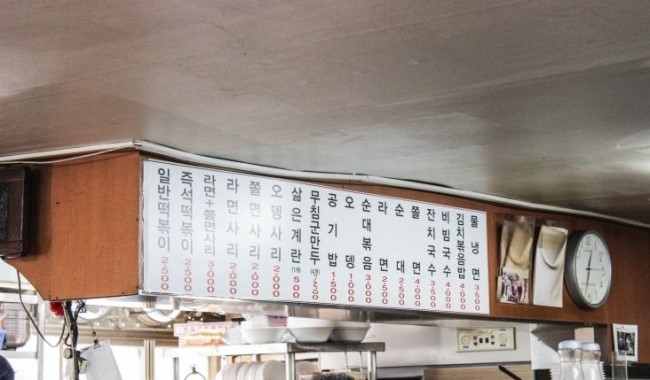 일반떡볶이 2500
즉석떡볶이 2500
라면+쫄면사리 3000
라면사리 2000
쫄면사리 2000
오뎅사리 2000
삶은계란 500
무침군만두
공기밥
오뎅 1000
순대볶음
라면 2500
순대 2500
쫄면 4000
잔치국수 3500
비빔국수 4000
김치볶음밥 4000
물냉면